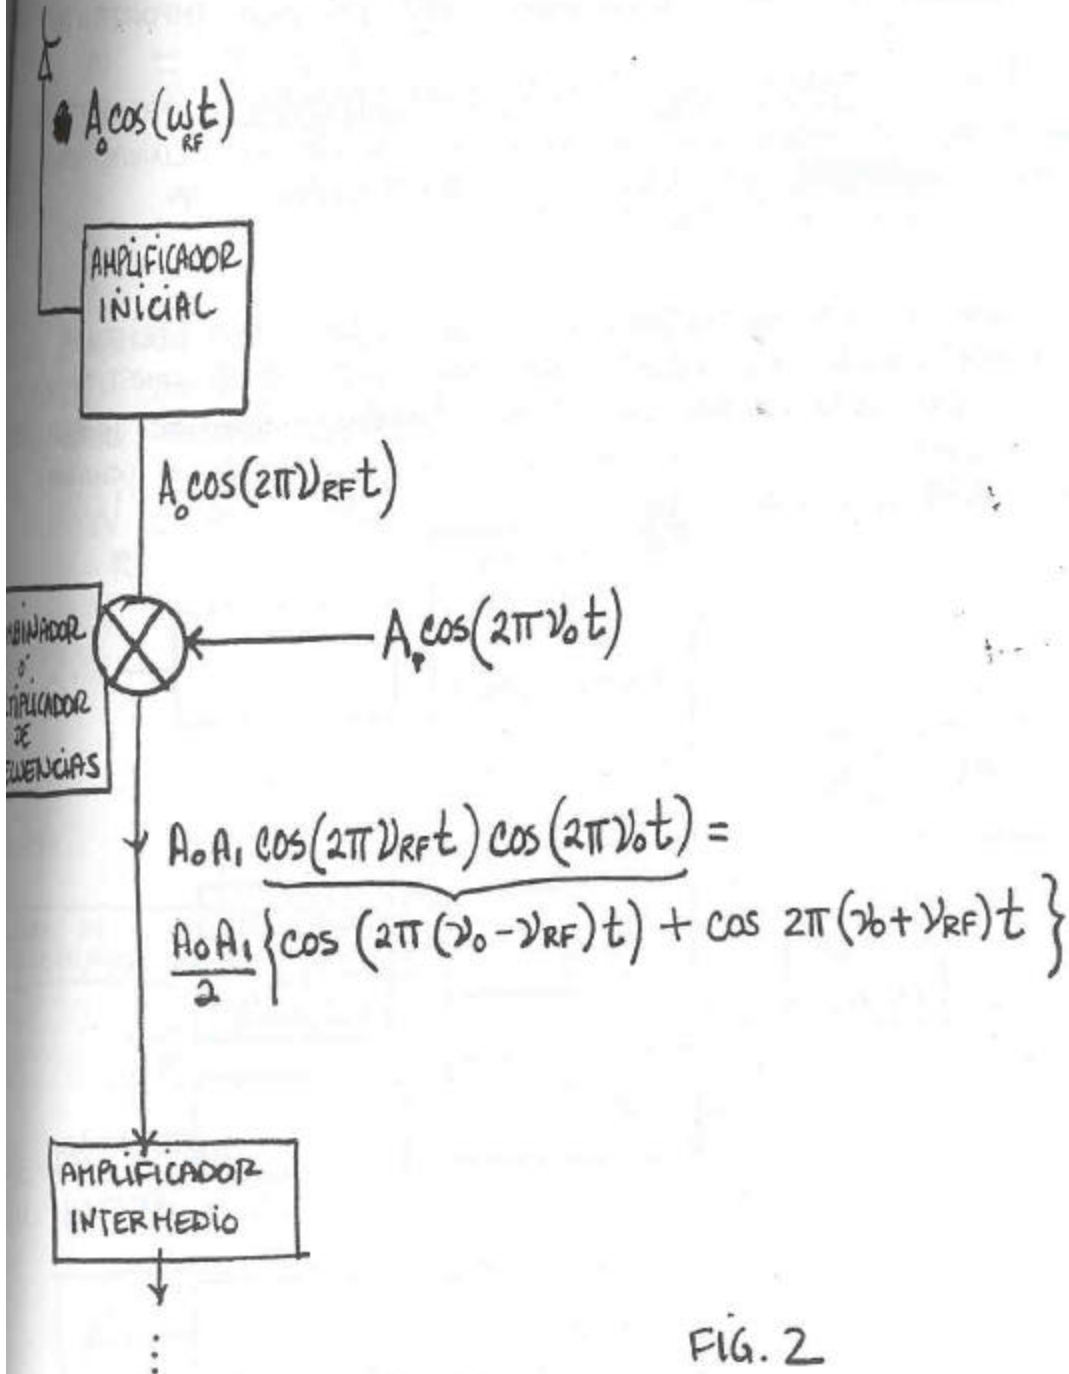 A₀cos(ωt)
RF
AMPLIFICADOR
INICIAL
A₀cos(2πνRFt)
BINADOR
ó
TIPLICADOR
DE
CUENCIAS
A₁cos(2πν₀t)
A₀A₁ cos(2πνRFt) cos(2πν₀t) =
A₀A₁/2 {cos (2π(ν₀-νRF)t) + cos 2π(ν₀+νRF)t}
AMPLIFICADOR
INTERMEDIO
FIG. 2